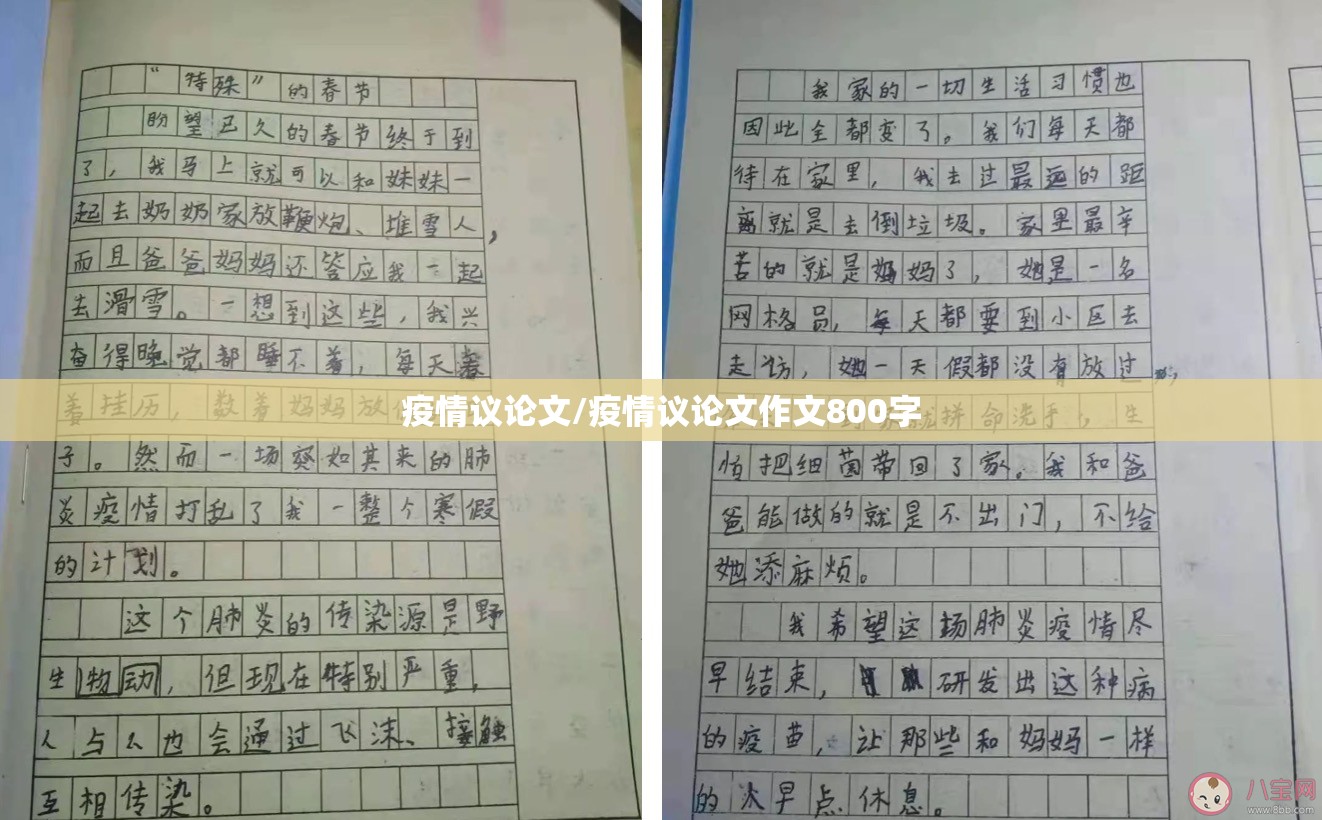 “特殊”的春节
盼望已久的春节终于到
了，我马上就可以和妹妹一
起去奶奶家放鞭炮、堆雪人，
而且爸爸妈妈还答应我一起
去滑雪。一想到这些，我兴
奋得晚觉都睡不着，每天看
着挂历，数着妈妈放
子。然而一场突如其来的肺
炎疫情打乱了我一整个寒假
的计划。
这个肺炎的传染源是野
生物动，但现在特别严重，
人与人也会通过飞沫、接触
互相传染。
我家的一切生活习惯也
因此全都变了。我们每天都
待在家里，我去过最远的距
离就是去倒垃圾。家里最辛
苦的就是妈妈了，她是一名
网格员，每天都要到小区去
走访，她一天假都没有放过，
就拼命洗手，生
怕把细菌带回了家。我和爸
爸能做的就是不出门，不给
她添麻烦。
我希望这场肺炎疫情尽
早结束，研发出这种病
的疫苗，让那些和妈妈一样
的人早点休息。
疫情议论文/疫情议论文作文800字
八宝网
www.8bb.com